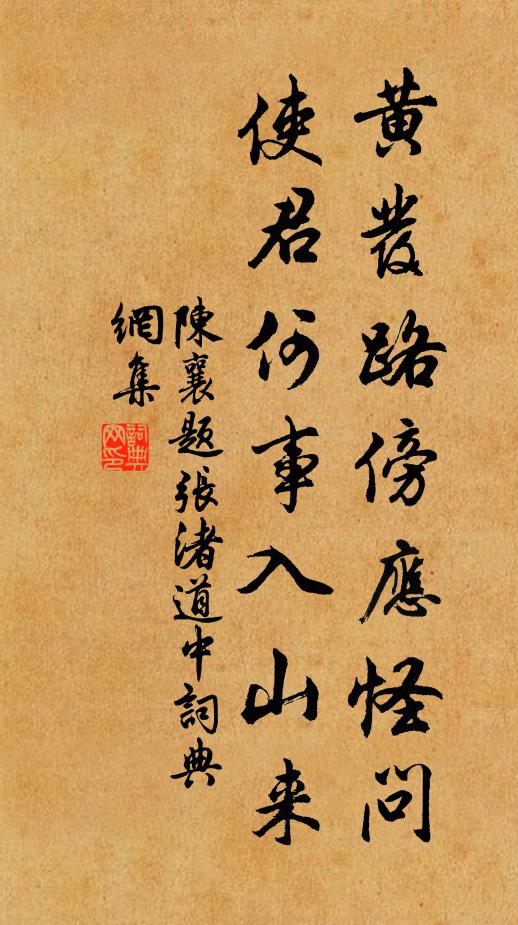 黄發路傍應怪問
使君何事入山来
陳襄题張渚道中詞典
網集
詞典網印